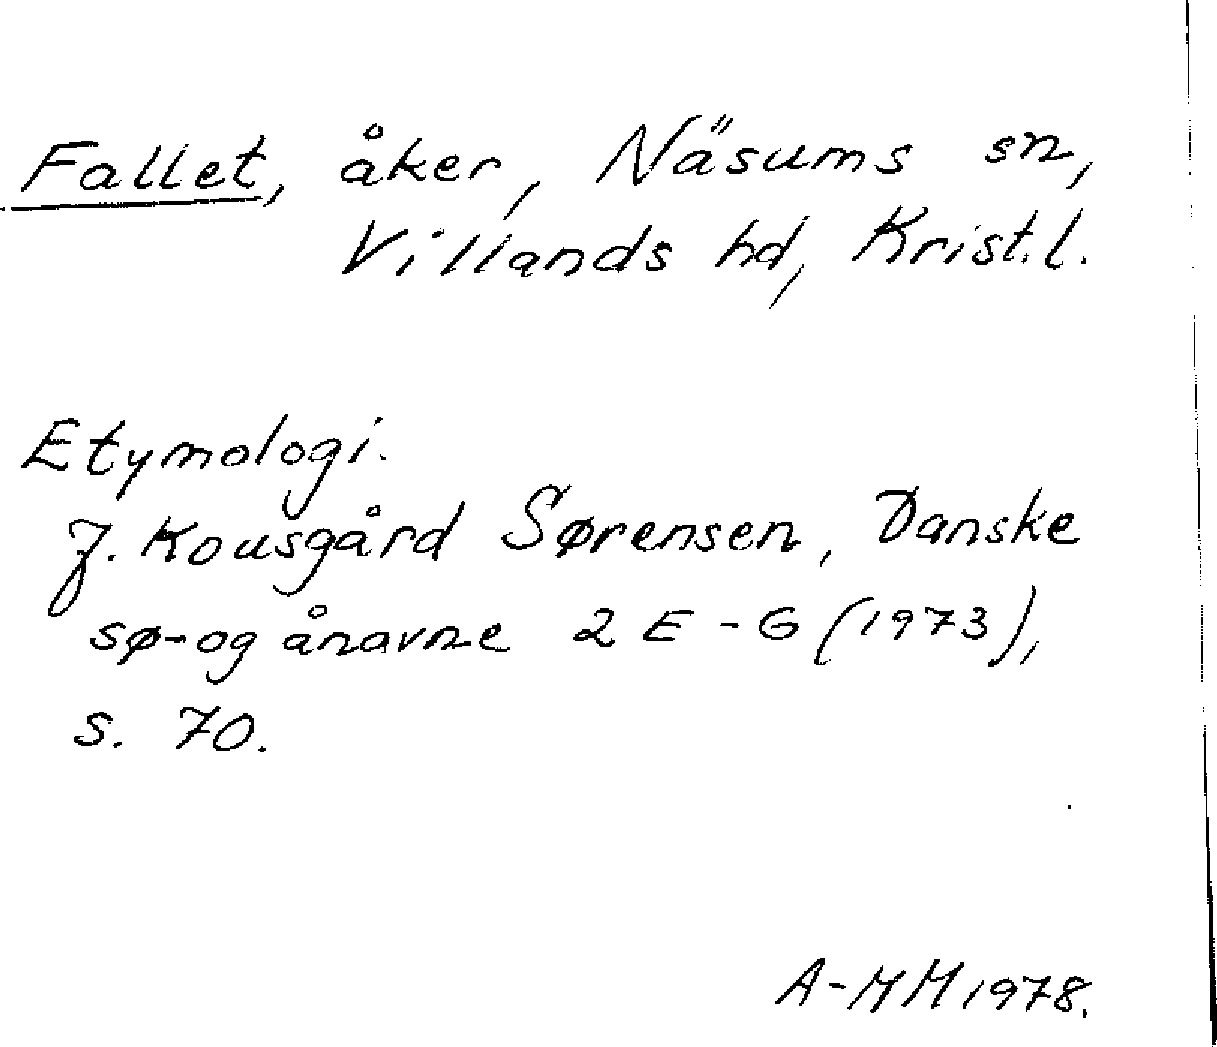 Fallet, åker, Näsums sn,
Villands hd, Krist.l.
Etymologi.
J. Kousgård Sørensen, Danske
sø- og ånavne 2 E - G (1973),
s. 70.
A-MM 1978.